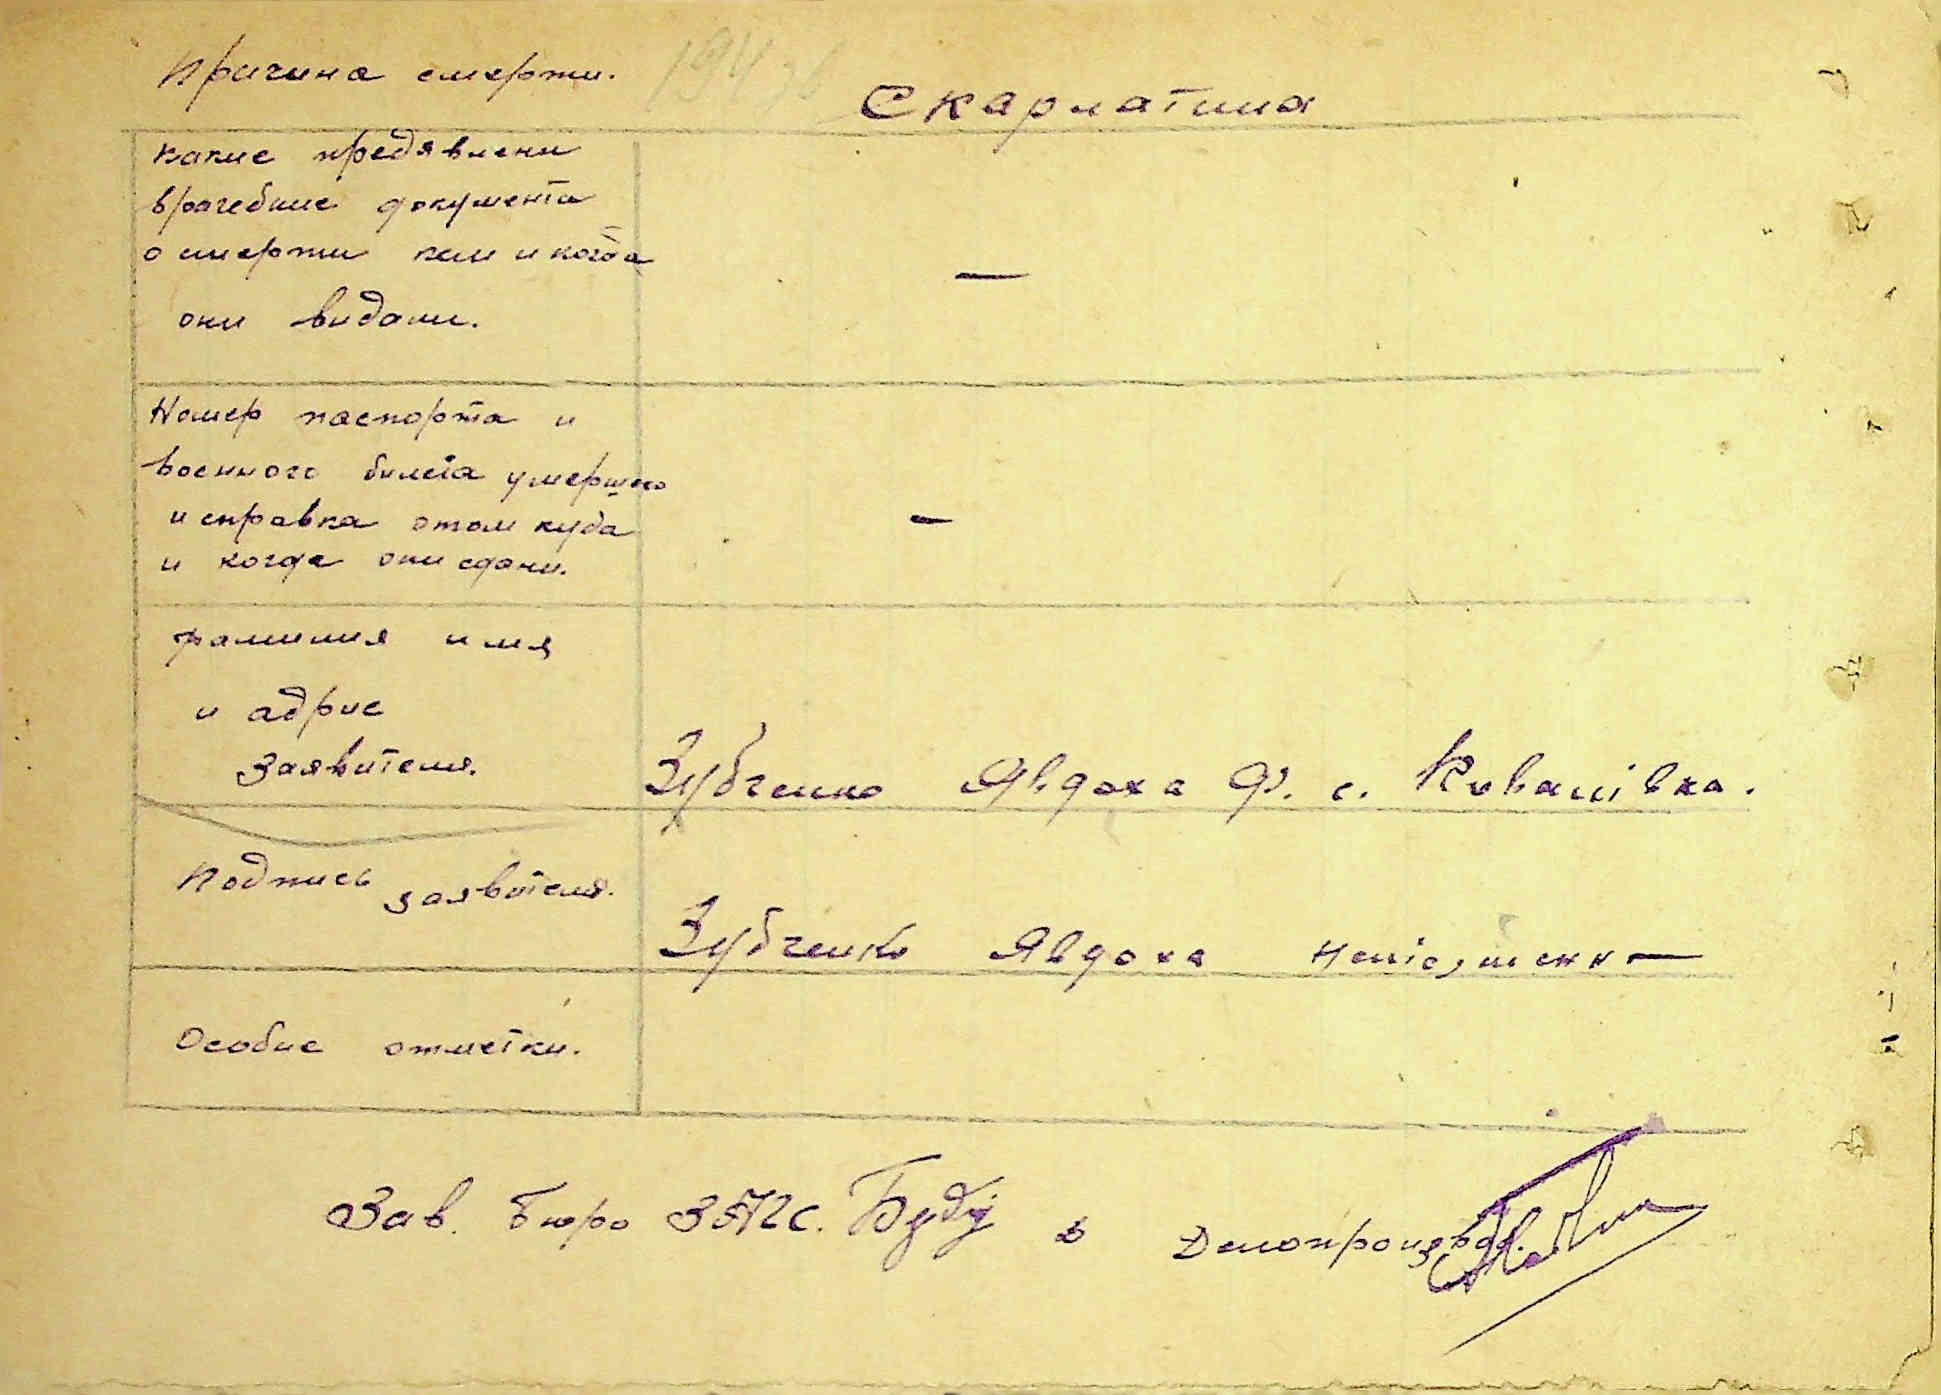 Причина смерти.
Скарлатина
какие предявлени
врачебние документи
о смерти кем и когда
они видани.
—
Номер паспорта и
военного билета умершего
и справка отом куда
и когда они сдани.
—
фамилия имя
и адрис
заявителя.
Зубченко Явдоха Ф. с. Кованівка.
Подпись заявителя.
Зубченко Явдоха
Особие отметки.
Зав. Бюро ЗАГС.
Делопроизвод.